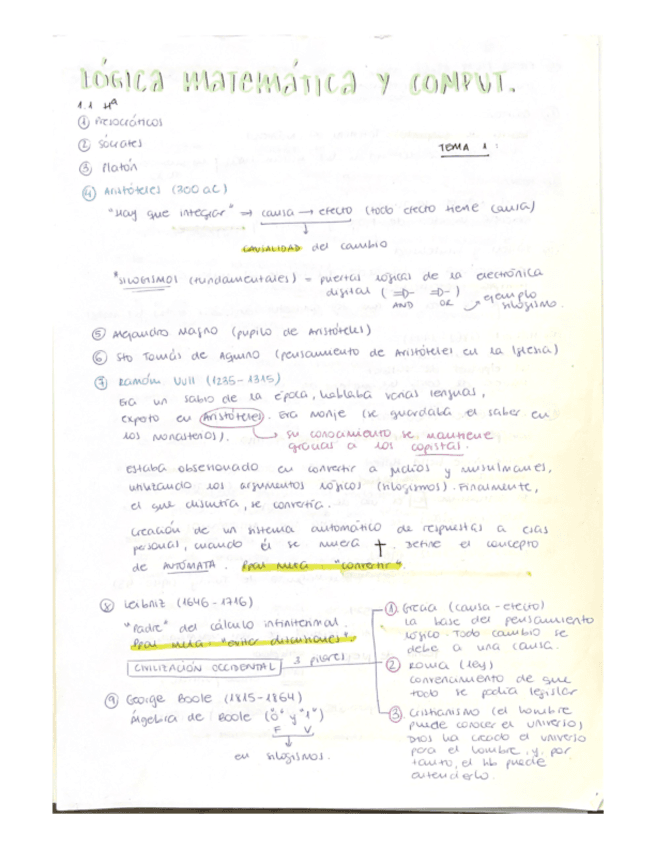 LÓGICA MATEMÁTICA Y COMPUT.
1.1 Hª
① Presocráticos
② Sócrates
TEMA 1:
③ Platón
④ Aristóteles (300 a.C)
"Hay que integrar" → causa → efecto (todo efecto tiene causa)
CAUSALIDAD del cambio
"SILOGISMOS (fundamentales) - puertas lógicas de la electrónica
digital ( =D- =D- ) ejemplo
AND OR silogismo.
⑤ Alejandro Magno (pupilo de Aristóteles)
⑥ Sto Tomás de Aquino (pensamiento de Aristóteles en la Iglesia)
⑦ Ramón Llull (1235 - 1315)
Era un sabio de la época, hablaba varias lenguas,
experto en Aristóteles. Era monje (se guardaba el saber en
los monasterios). su conocimiento se mantiene
gracias a los copistas.
estaba obsesionado en convertir a judíos y musulmanes,
utilizando los argumentos lógicos (silogismos). Finalmente,
el que discutía, se convertía.
creación de un sistema automático de respuestas a esas
personas, cuando él se muera ✝. Define el concepto
de AUTÓMATA. Ppal meta: "convertir".
⑧ Leibniz (1646 - 1716)
"Padre" del cálculo infinitesimal.
Ppal meta: "evitar discusiones".
CIVILIZACIÓN OCCIDENTAL 3 pilares
① Grecia (causa - efecto)
la base del pensamiento
lógico. Todo cambio se
debe a una causa.
② Roma (ley)
convencimiento de que
todo se podía legislar
③ Cristianismo (el hombre
puede conocer el universo)
Dios ha creado el universo
para el hombre, y, por
tanto, el hb puede
entenderlo.
⑨ George Boole (1815 - 1864)
álgebra de Boole ("0" y "1")
F V
en silogismos.